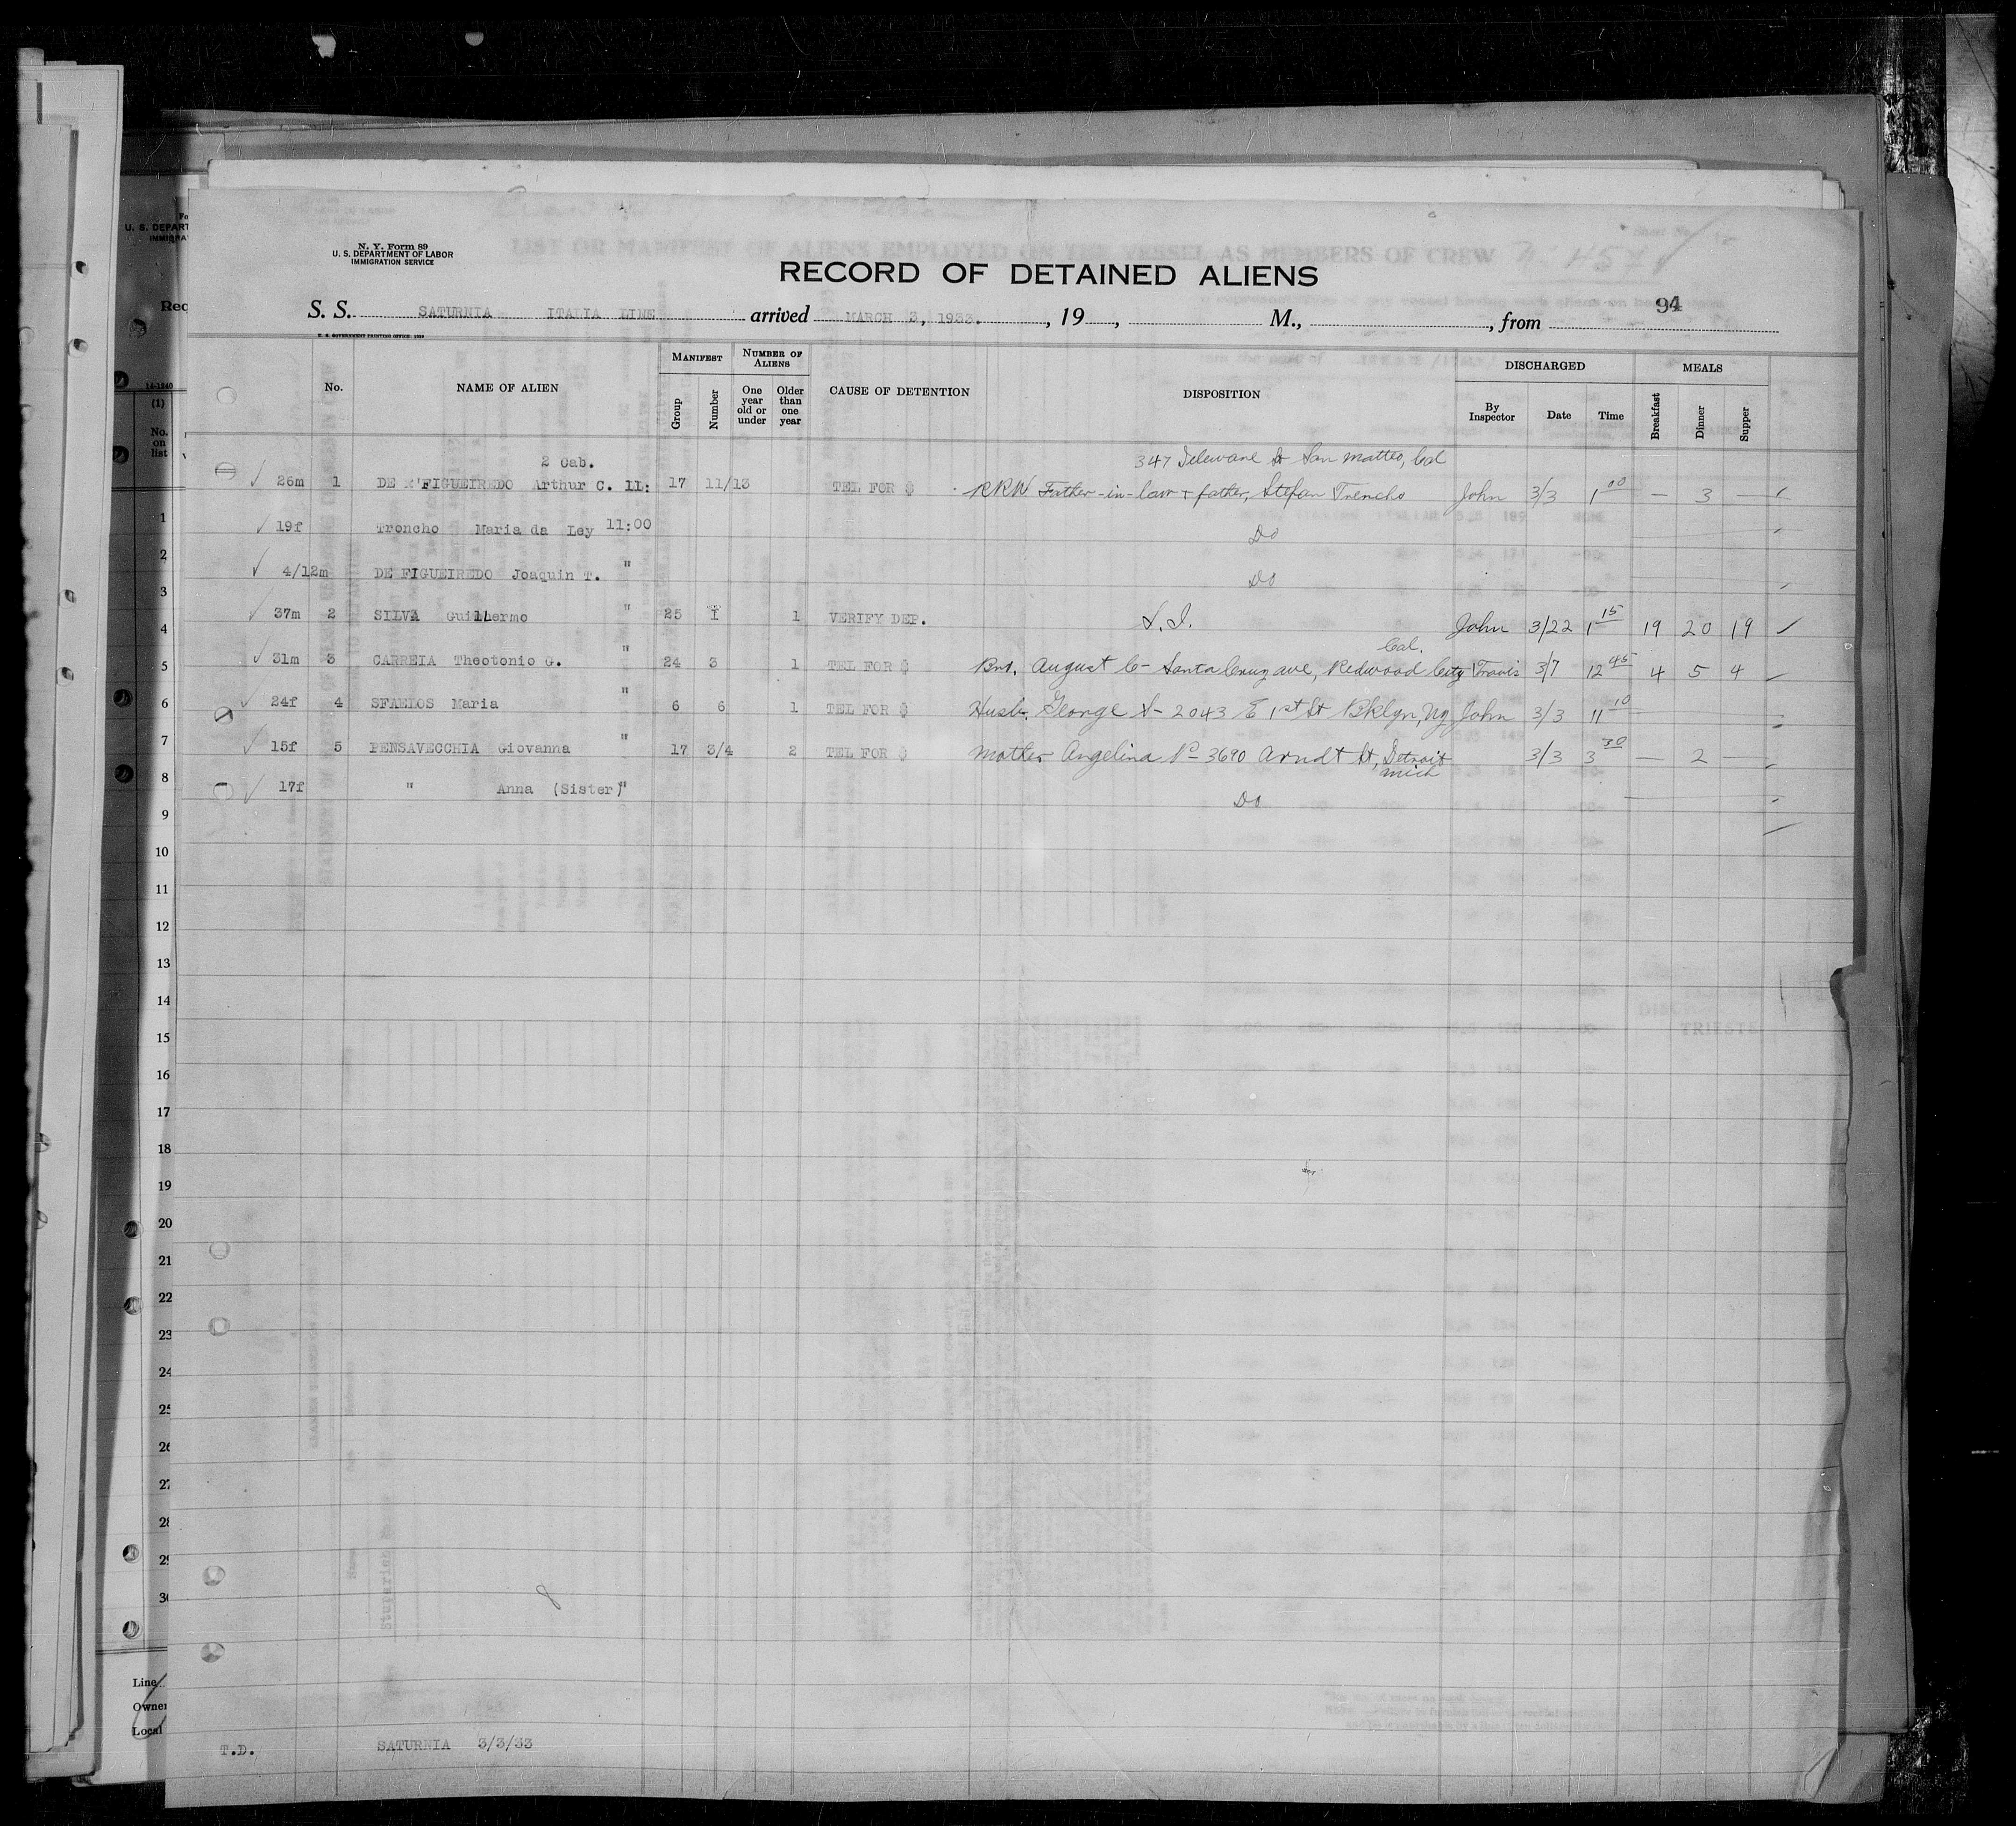 N. Y. Form 89
U. S. DEPARTMENT OF LABOR
IMMIGRATION SERVICE
RECORD OF DETAINED ALIENS
94
S. S. SATURNIA ITALIA LINE arrived MARCH 3, 1933. , 19 , M., , from
U. S. GOVERNMENT PRINTING OFFICE: 1929
No. NAME OF ALIEN MANIFEST Group Number NUMBER OF ALIENS One year old or under Older than one year CAUSE OF DETENTION DISPOSITION DISCHARGED By Inspector Date Time MEALS Breakfast Dinner Supper
2 Cab. 347 St San Matteo, Cal
26m 1 DE FIGUEIREDO Arthur C. 11: 17 11/13 TEL FOR $ Father-in-law + father, Stefan Trencho John 3/3 1 00 — 3 —
19f Troncho Maria da Ley 11:00 Do
4/12m DE FIGUEIREDO Joaquin T. " Do
37m 2 SILVA Guilhermo " 25 1 1 VERIFY DEP. S.I. John 3/22 1 15 19 20 19
31m 3 CARREIA Theotonio G. " 24 3 1 TEL FOR $ Bro. August C- Santa Cruz ave, Redwood City Cal. Travis 3/7 12 45 4 5 4
24f 4 SFAELOS Maria " 6 6 1 TEL FOR $ Husb. George S- 2043 E 1st St Bklyn, Ny John 3/3 11 10
15f 5 PENSAVECCHIA Giovanna " 17 3/4 2 TEL FOR $ Mother Angelina P- 3690 Arndt St, Detroit Mich 3/3 3 30 — 2 —
17f " Anna (Sister) " Do
8
T.D. SATURNIA 3/3/33
U. S. DEPART
IMMIGRA
Rec
14-1240
(1)
No. on list
1
2
3
4
5
6
7
8
9
10
11
12
13
14
15
16
17
18
19
20
21
22
23
24
Line
Owner
Local